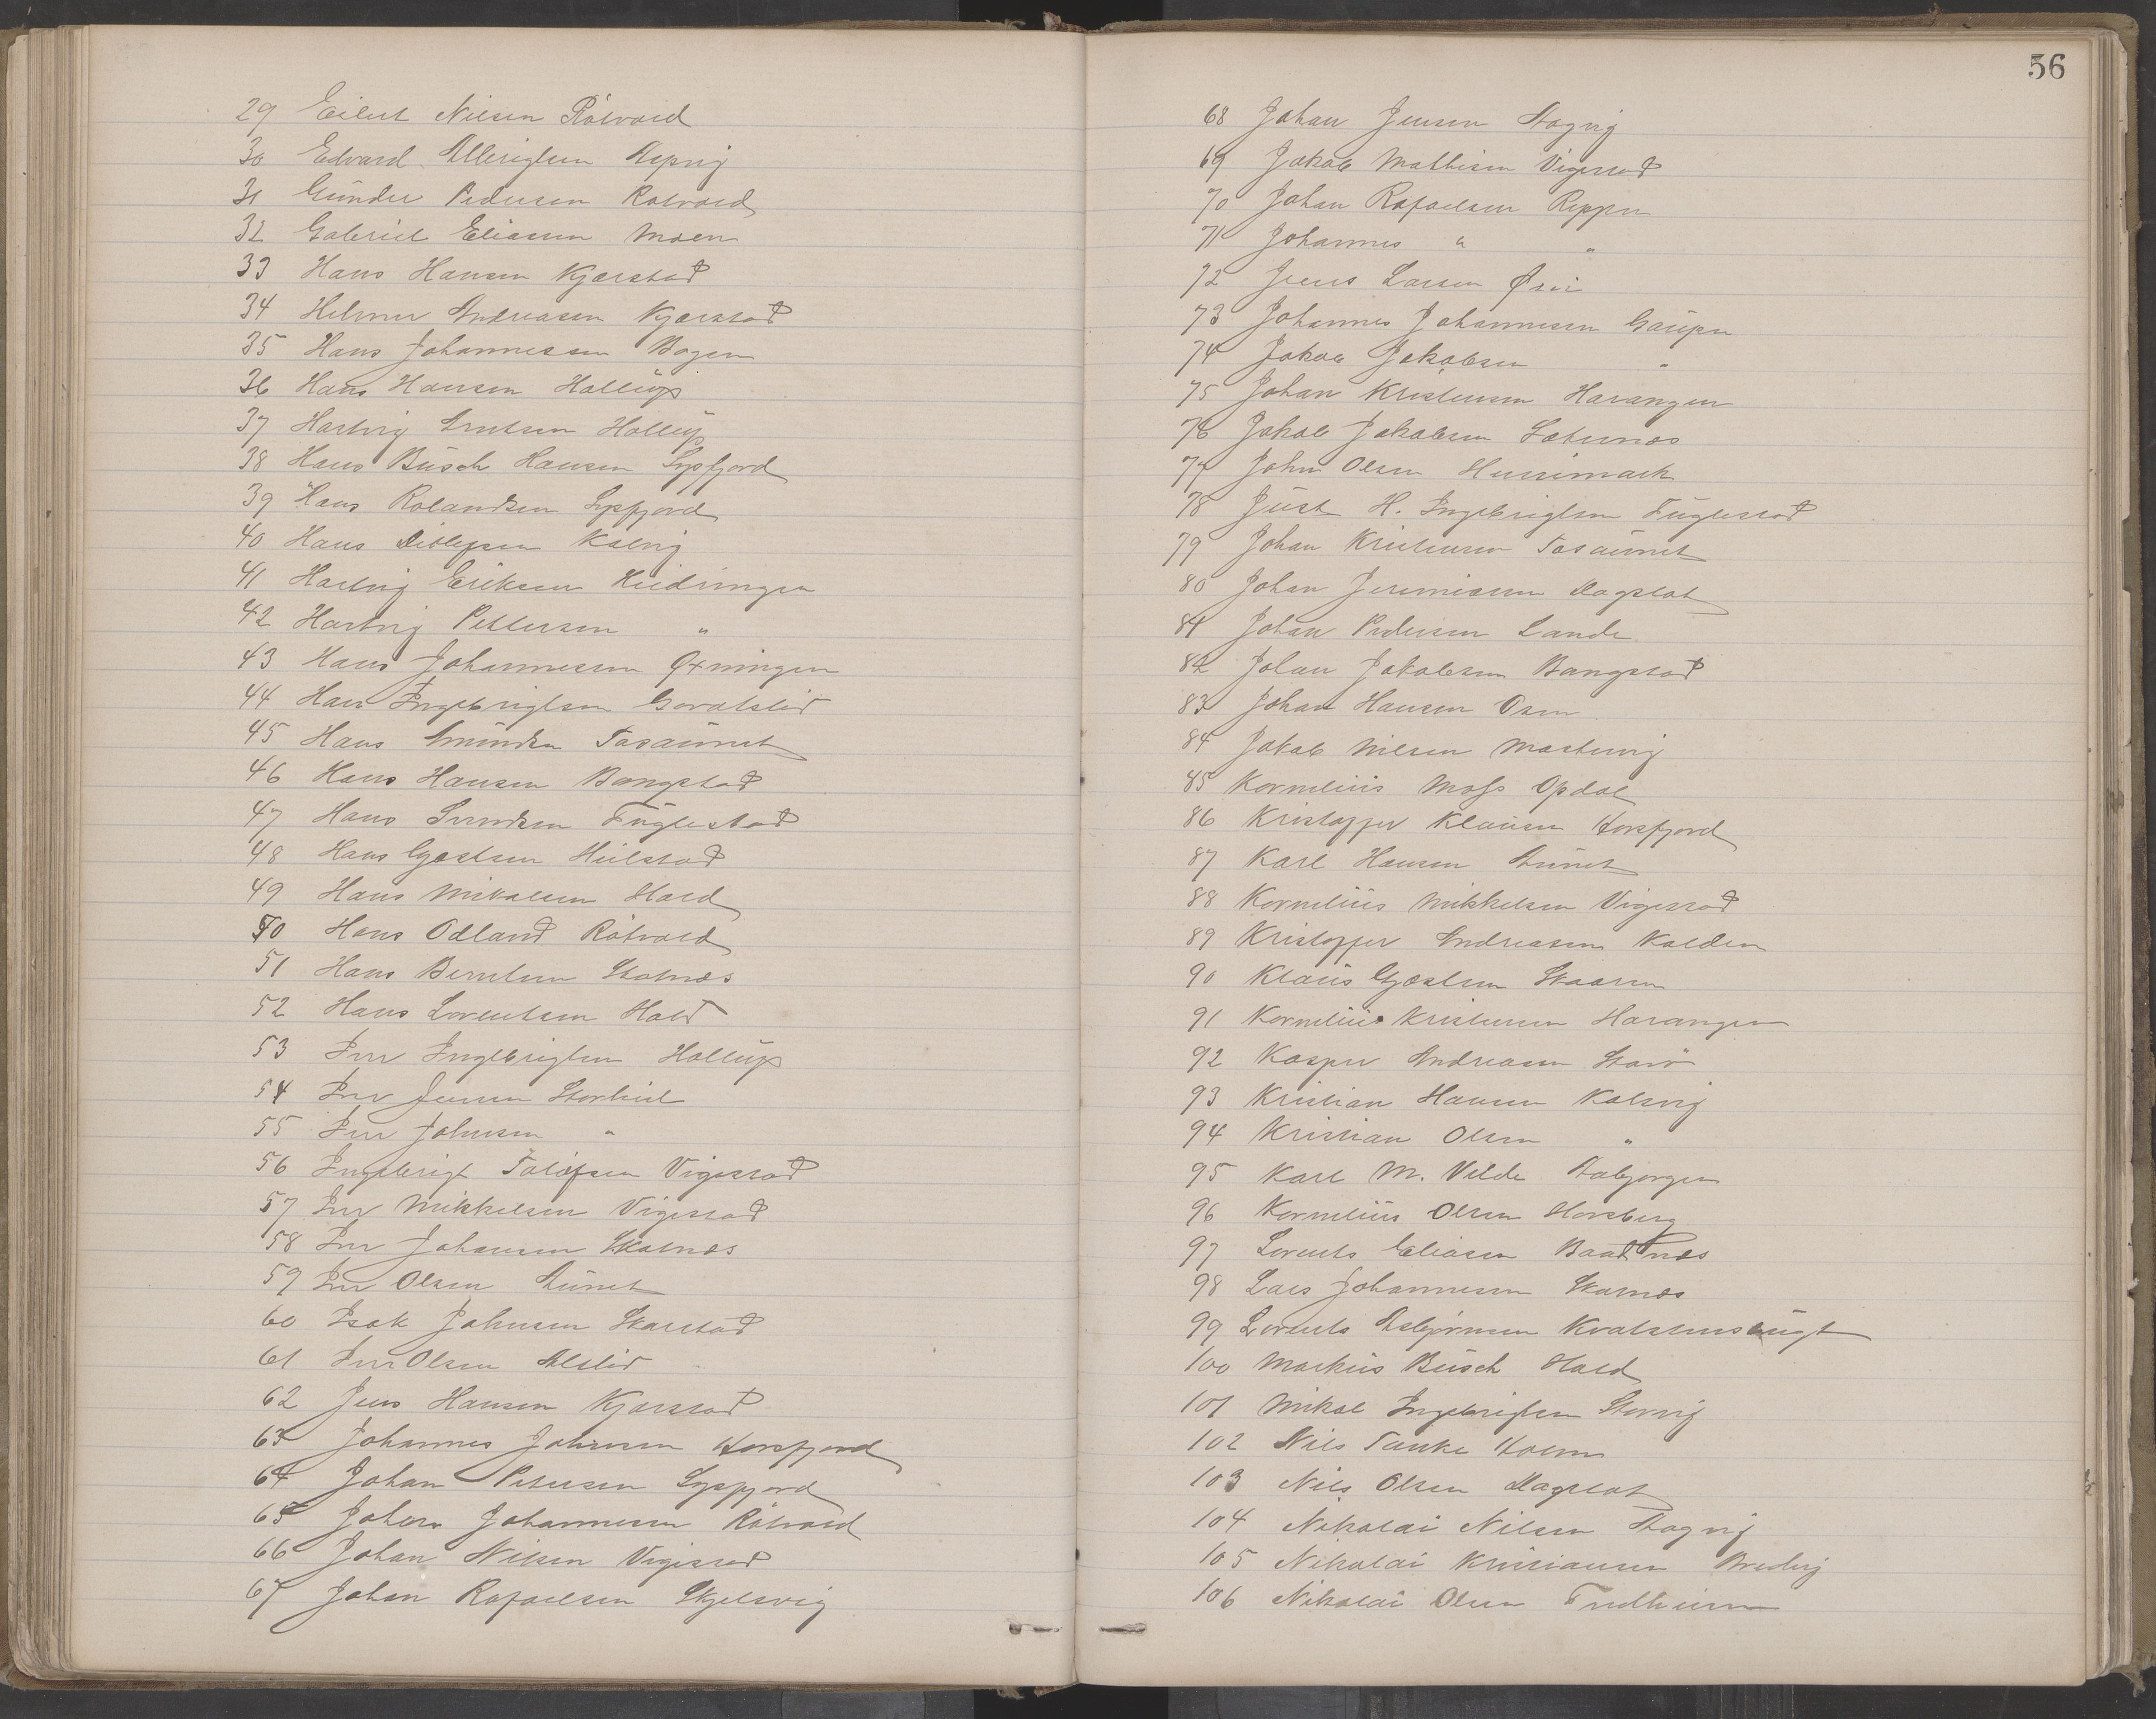 29 Eilert Nilsen Råtvold
30 Edvard Albrigtsen Aspvig
31 Gunder Pedersen Råtvold
32 Gabriel Eliassen Moen
33 Hans Hansen Kjærstad
34 Helmer Andreasen Kjærstad
35 Hans Johannessen Bogen
36 Hans Hansen Hallüp
37 Hartvig Arntsen Hollüp
38 Hans Büsch Hansen Sysfjord
39 Hans Rolandsen Sysfjord
40 Hans Ditlefsen Kalvig
41 Hartvig Eriksen Heidningen
42 Hartvig Pettersen "
43 Hans Johannessen Øxningen
44 Hans Ingebrigtsen Gvalslid
45 Hans Amundsen Tosaünet
46 Hans Hansen Bangstad
47 Hans Svendsen Füglestad
48 Hans Gjæslsen Hülstad
49 Hans Mikalsen Hald
50 Hans Odland Råtvold
51 Hans Berntsen Skotnes
52 Hans Lorentsen Hald
53 Iver Ingebrigtsen Hollüp
54 Iver Jensen Storlid
55 Iver Johnsen "
56 Ingebrigt Tolöfsen Vigestad
57 Iver Mikkelsen Vigestad
58 Iver Johansen Skotnes
59 Iver Olsen Aünet
60 Isak Johnsen Skarstad
61 Iver Olsen Alslid
62 Jens Hansen Kjærstad
63 Johannes Johnsen Horsfjord
64 Johan Petersen Sysfjord
65 Johan Johannesen Råtvold
66 Johan Nilsen Vigestad
67 Johan Rafaelsen Skjelsvig
56
68 Johan Jensen Aagvig
69 Jakob Mathisen Vigestad
70 Johan Rafaelsen Reppen
71 Johannes " "
72 Jens Larsen
73 Johannes Johannesen Gaüpen
74 Jakob Jakobsen "
75 Johan Kristensen Harangen
76 Jakob Jakobsen Sæternes
77 John Olsen Hunimark
78 Jüst H. Ingebrigtsen Füglestad
79 Johan Kristensen Tosaünet
80 Johan Jeremiasen Dagslot
81 Johan Pedersen Lande
82 Johan Jakobsen Bangstad
83 Johan Hansen Osen
84 Jakob Nilsen Mastervig
85 Kornelius Moss Opdal
86 Kristoffer Klausen Horsfjord
87 Karl Hansen Aünet
88 Kornelius Mikkelsen Vigestad
89 Kristoffer Andreasen Kolden
90 Klaüs Gjæslsen Skaaren
91 Kornelius Kristensen Harangen
92 Kasper Andreasen
93 Kristian Hansen Kalsvig
94 Kristian Olsen "
95 Karl M. Velde Aabjørgen
96 Kornelius Olsen Horsberg
97 Lorents Eliasen Baadsnes
98 Lars Johannesen Skarnes
99 Lorents Asbjørnsen Kvalstensbügt
100 Marküs Büsch Hald
101 Mikal Ingebrigtsen Storvig
102 Nils Tanke Holm
103 Nils Olsen Dagslot
104 Nikolai Nilsen Aagvig
105 Nikolai Kristiansen Bredvig
106 Nikolai Olsen Trælheim